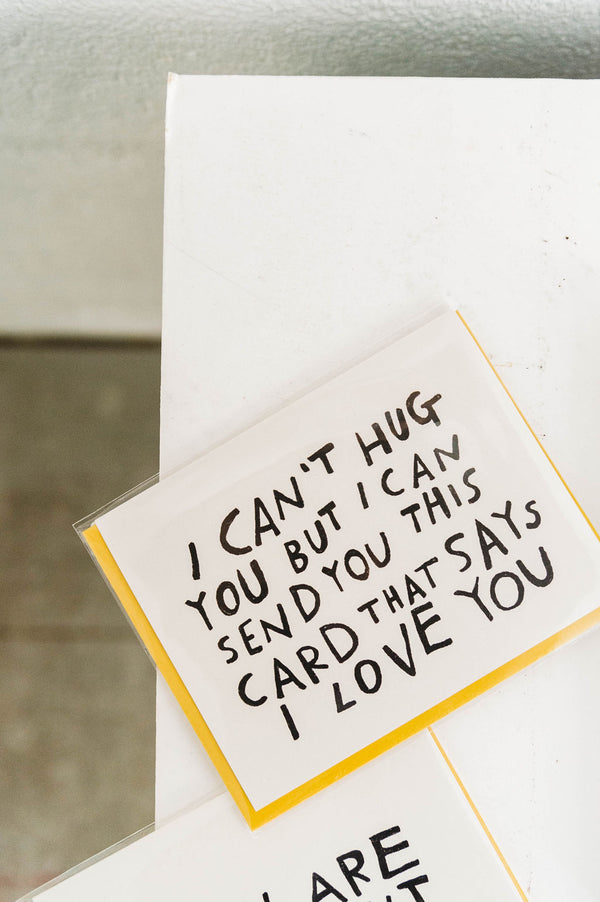 I CAN'T HUG
YOU BUT I CAN
SEND YOU THIS
CARD THAT SAYS
I LOVE YOU
ARE